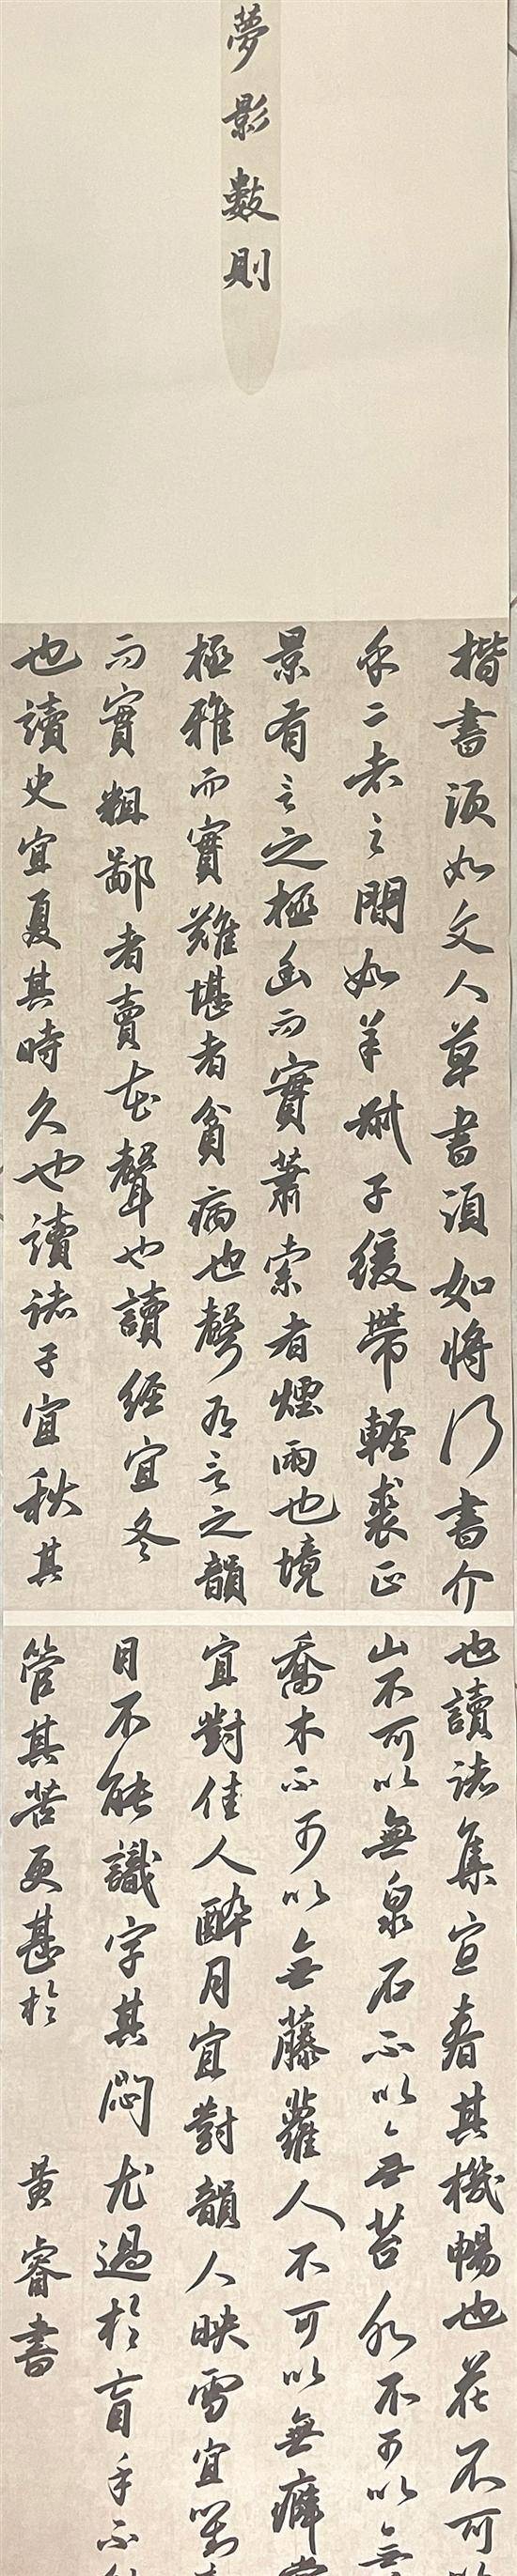 夢影數則
楷書須如文人草書須如將行書介
乎二者之間如羊叔子緩帶輕裘正
景有言之極幽而實蕭索者煙雨也境
極雅而實難堪者貧病也聲有言之韻
而實粗鄙者賣花聲也讀經宜冬
也讀史宜夏其時久也讀諸子宜秋其
也讀諸集宜春其機暢也花不可以
山不可以無泉石不以無苔水不可以無
喬木不可以無藤蘿人不可以無癖
宜對佳人醉月宜對韻人映雪宜對
目不能識字其悶尤過於盲手不
管其苦更甚於 黃睿書